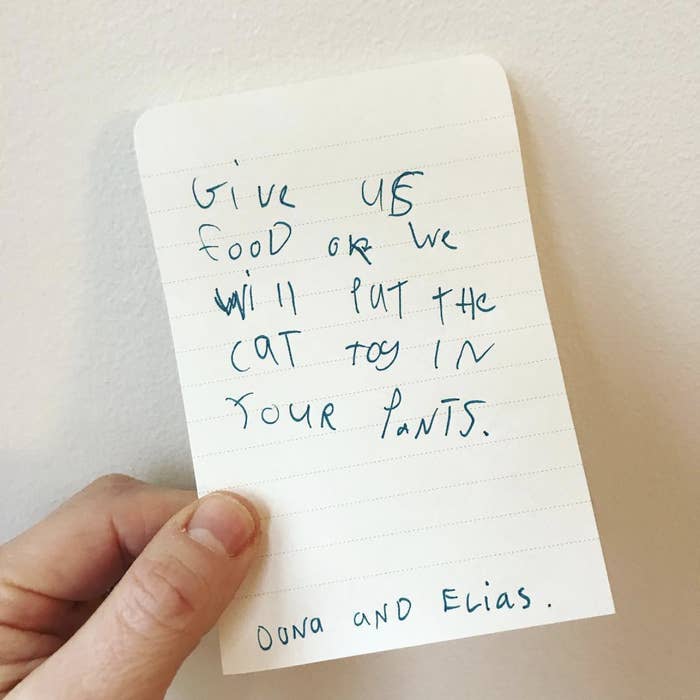 Give us
food or we
will put the
cat toy in
your pants.
Oona and Elias.